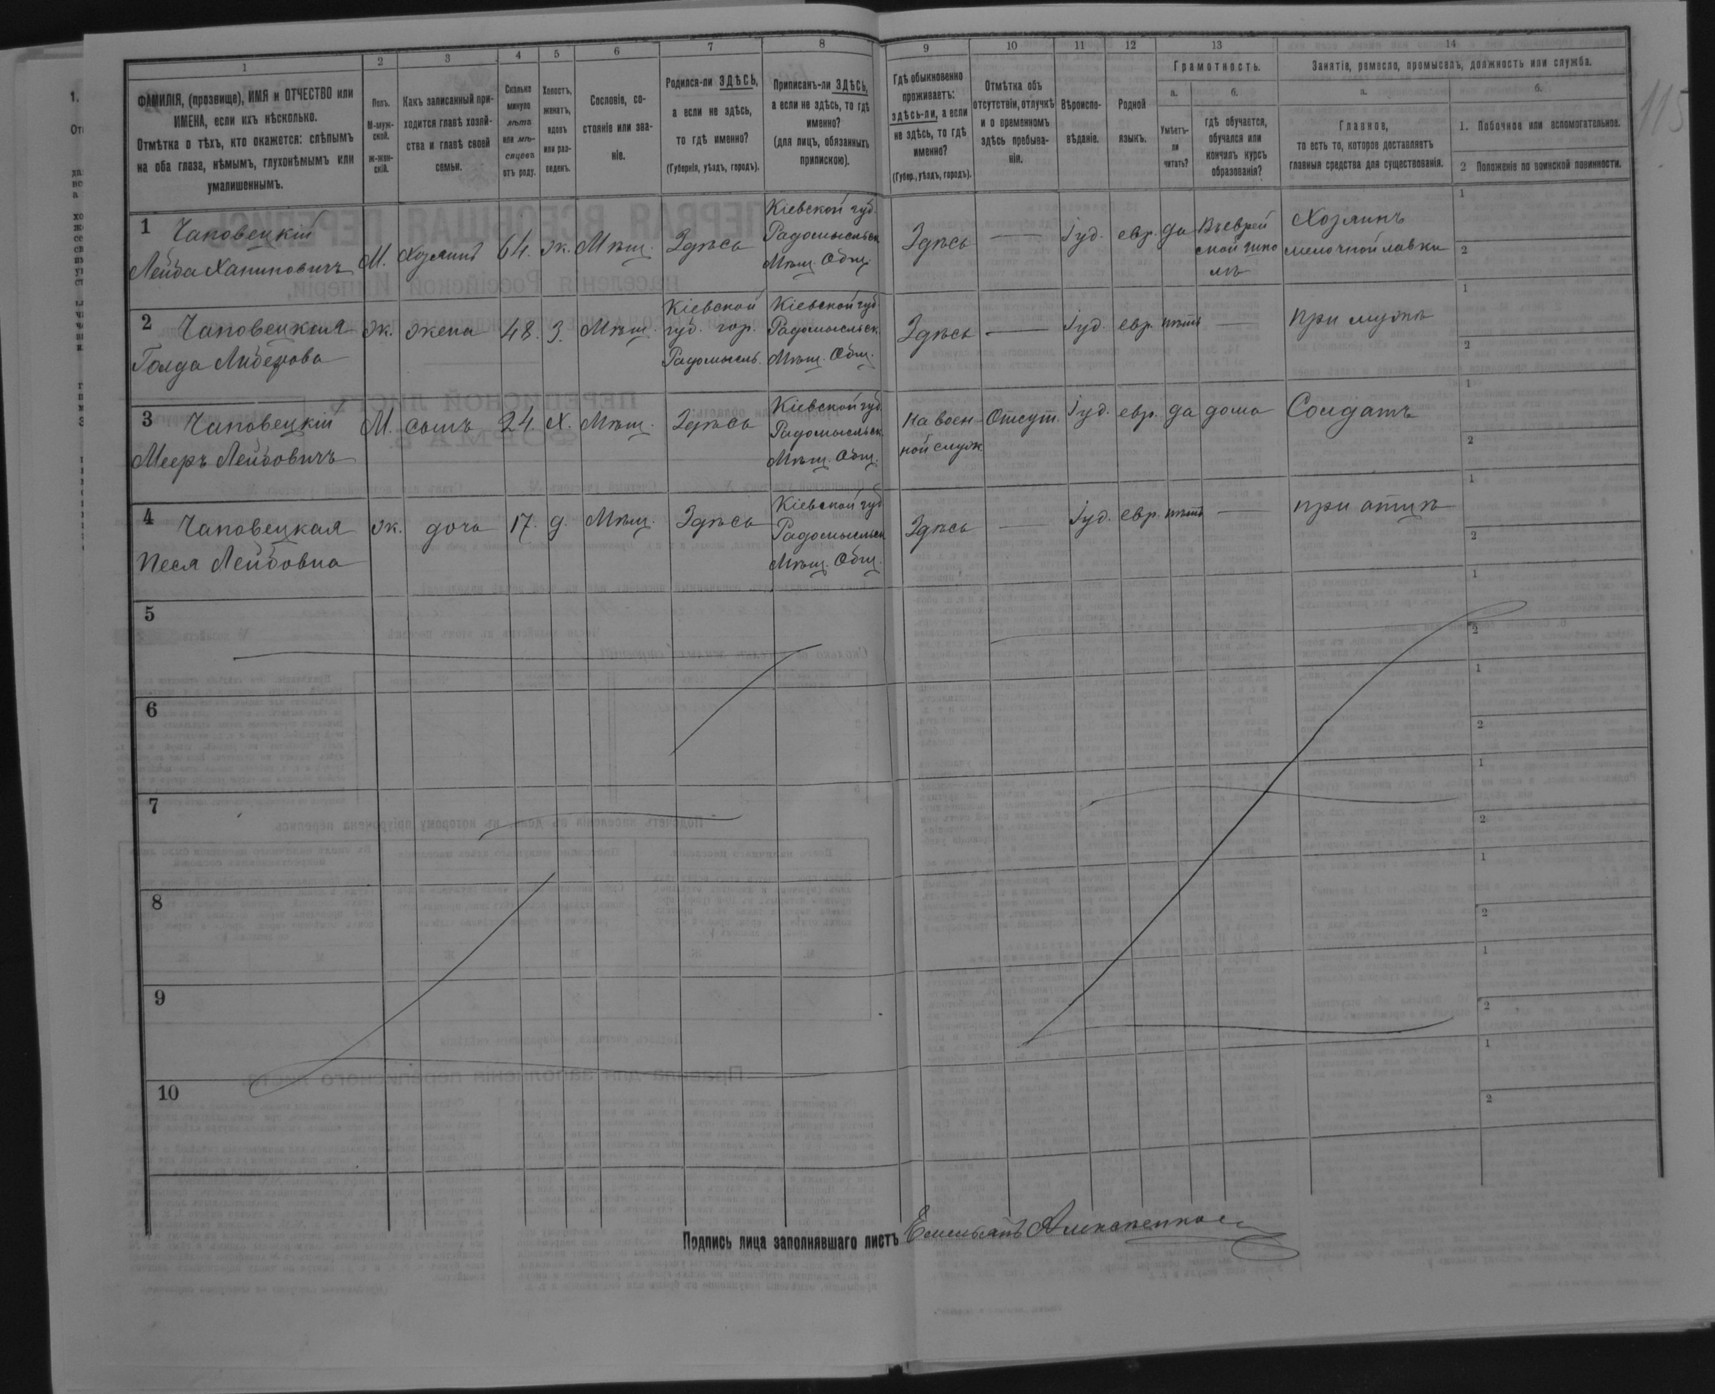 1 2 3 4 5 6 7 8 9 10 11 12 13 14
ФАМИЛІЯ, (прозвище), ИМЯ и ОТЧЕСТВО или
ИМЕНА, если ихъ нѣсколько.
Отмѣтка о тѣхъ, кто окажется: слѣпымъ
на оба глаза, нѣмымъ, глухонѣмымъ или
умалишеннымъ.
Полъ.
М-муж-
ской.
Ж-жен-
скій.
Какъ записанный при-
ходится главѣ хозяй-
ства и главѣ своей
семьи.
Сколько
минуло
лѣтъ
или мѣ-
сяцевъ
отъ роду.
Холостъ,
женатъ,
вдовъ
или раз-
веденъ.
Сословіе, со-
стояніе или зва-
ніе.
Родился-ли ЗДѢСЬ,
а если не здѣсь,
то гдѣ именно?
(Губернія, уѣздъ, городъ).
Приписанъ-ли ЗДѢСЬ,
а если не здѣсь, то гдѣ
именно?
(для лицъ, обязанныхъ
припискою).
Гдѣ обыкновенно
проживаетъ:
здѣсь-ли, а если
не здѣсь, то гдѣ
именно?
(Губер., уѣздъ, городъ).
Отмѣтка объ
отсутствіи, отлучкѣ
и о временномъ
здѣсь пребыва-
ніи.
Вѣроиспо-
вѣданіе.
Родной
языкъ.
Грамотность.
а.
Умѣетъ-
ли
читать?
б.
гдѣ обучается,
обучался или
кончилъ курсъ
образованія?
Занятія, ремесло, промыселъ, должность или служба.
а.
Главное,
то есть то, которое доставляетъ
главныя средства для существованія.
б.
1. Побочное или вспомогательное.
2 Положеніе по воинской повинности.
115
1 Чаповецкій
Лейба Хаимовичъ
М. Хозяинъ 64. ж. Мѣщ. Здѣсь
Кіевской губ.
Радомысльск.
Мѣщ. Общ.
Здѣсь — Іуд. евр. да
Въ еврей
ской шко
лѣ
Хозяинъ
мелочной лавки
1
2
2 Чаповецкая
Голда Либерова
ж. жена 48. З. Мѣщ.
Кіевской
губ. гор.
Радомысль.
Кіевской губ
Радомысльск.
Мѣщ. Общ.
Здѣсь — Іуд. евр. нѣтъ — при мужѣ
1
2
3 Чаповецкій
Мееръ Лейбовичъ
М. сынъ 24. х. Мѣщ. Здѣсь
Кіевской губ.
Радомысльск.
Мѣщ. Общ.
На воен-
ной служ
Отсут. Іуд. евр. да дома Солдатъ
1
2
4 Чаповецкая
Песя Лейбовна
ж. дочь 17. д. Мѣщ. Здѣсь
Кіевской губ
Радомысльск
Мѣщ. Общ.
Здѣсь — Іуд. евр. нѣтъ — при отцѣ
1
2
5
1
2
6
1
2
7
1
2
8
1
2
9
1
2
10
1
2
Подпись лица заполнявшаго листъ Емельянъ